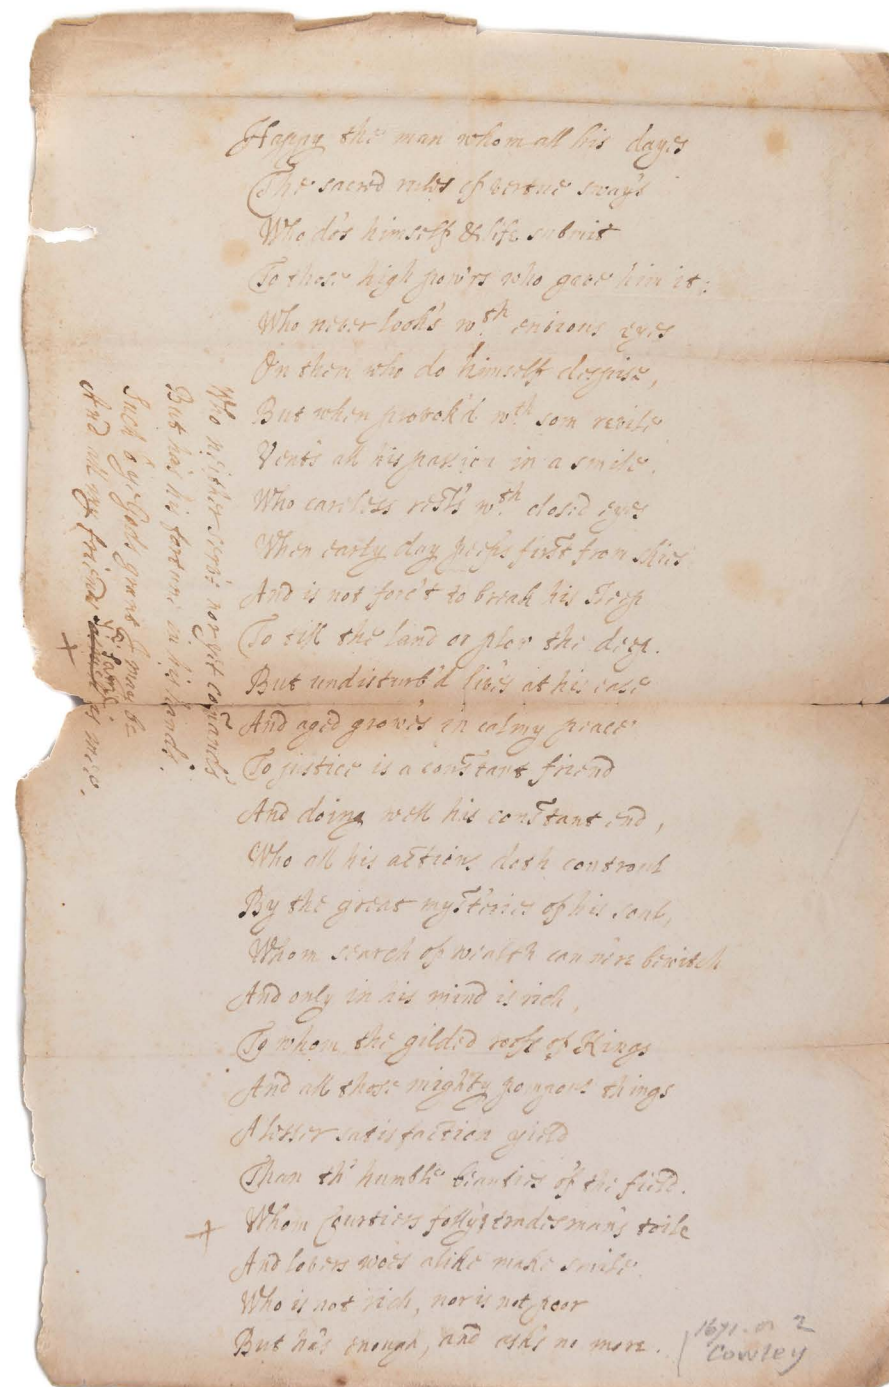 Happy the man whom all his dayes
The sacred rules of vertue sway's
Who do's himself & life submit
To those high pow'rs who gave him it;
Who never look's wth envious eyes
On them who do himself despise,
But when provok'd wth som revile
Vent's all his passion in a smile.
Who careless rest's wth closed eyes
When early day peep's first from skies
And is not forc't to break his sleep
To till the land or plow the deep.
But undisturb'd live's at his ease
And aged grow's in calmy peace
To justice is a constant friend
And doing well his constant end,
Who all his actions doth controul
By the great mysteries of his soul,
Whom search of wealth can nere bewitch
And only in his mind is rich,
To whom the gilded roofs of Kings
And all those mighty pompous things
A lesser satisfaction yield
Than th' humble beauties of the field.
+ Whom Courtiers folly's tradesman's toile
And lovers woes alike make smile
Who is not rich, nor is not poor
But ha's enough, and ask's no more.
Who neither serv's nor yet comands
But ha's his fortune in his hands.
Such ô ye Gods grant I may be
And all my friends as me.
+
1671. or 2
Cowley